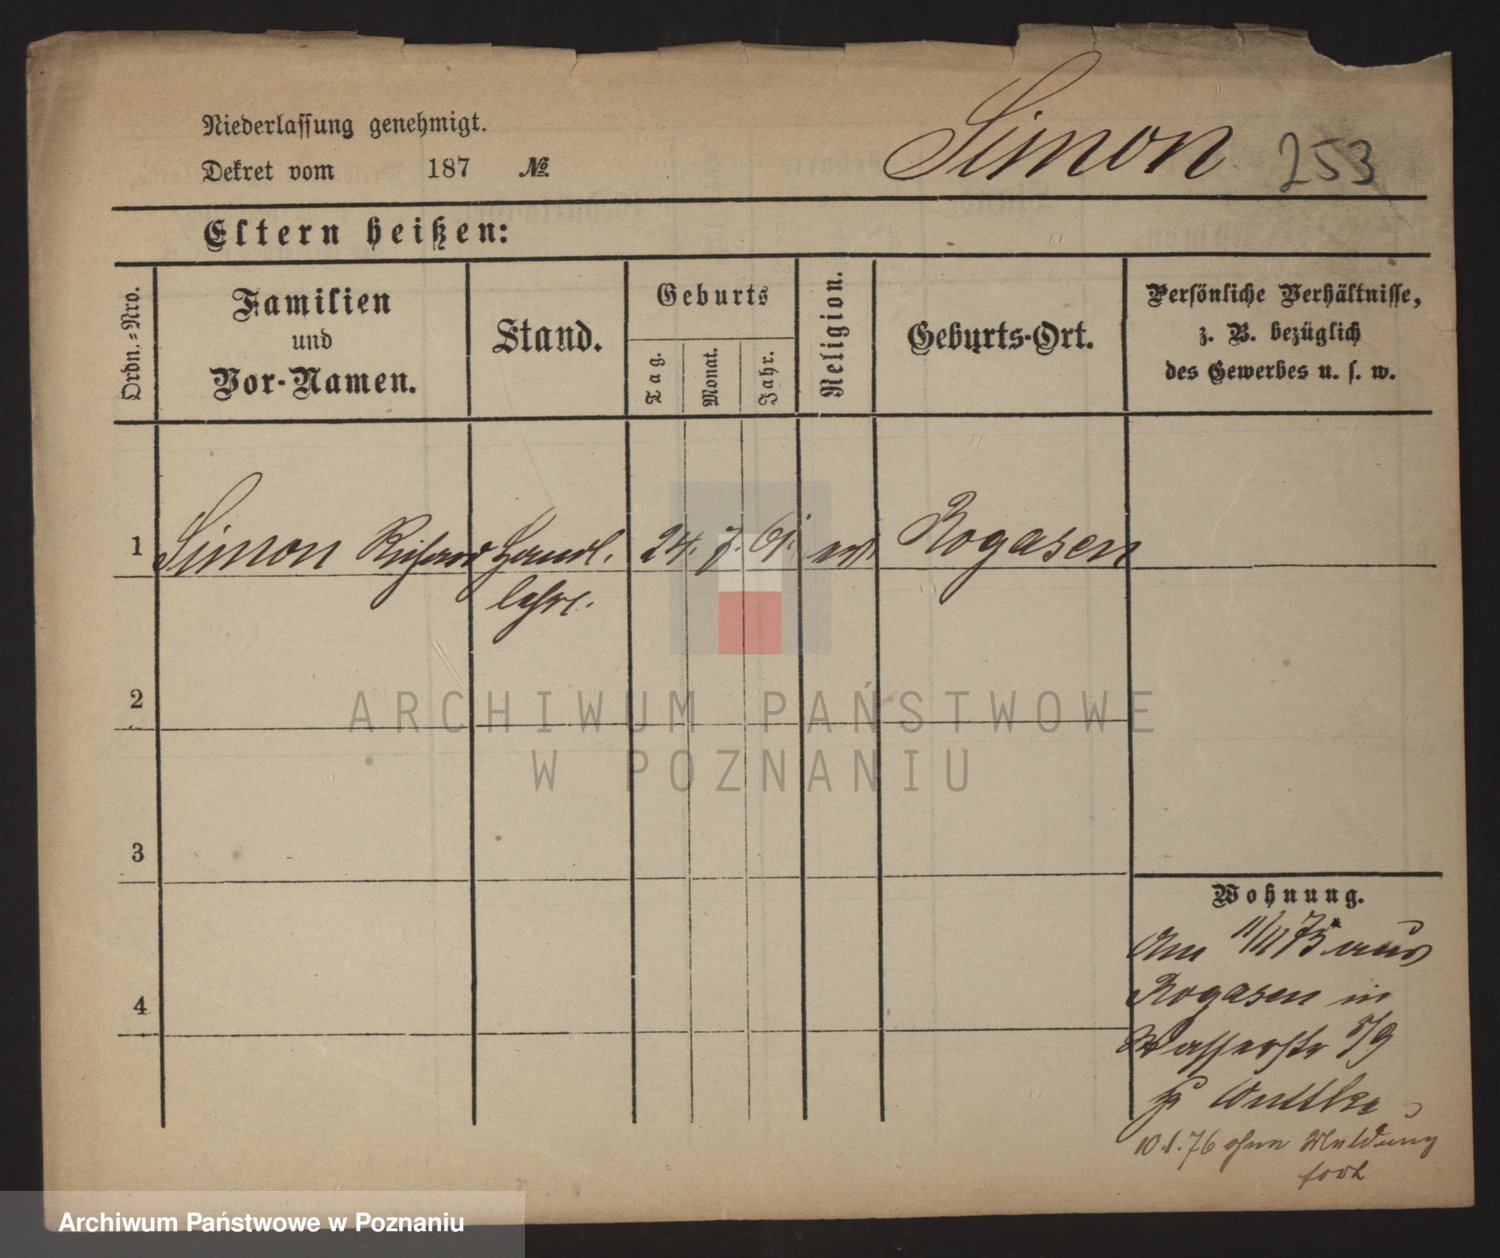 Niederlassung genehmigt.
Dekret vom 187 №
Simon 253
Eltern heißen:
Ordn.-Nro.
Familien
und
Vor-Namen.
Stand.
Geburts
Tag.
Monat.
Jahr.
Religion.
Geburts-Ort.
Persönliche Verhältnisse,
z. B. bezüglich
des Gewerbes u. s. w.
1 Simon Richard Handl. 24. 7. 61. Rogasen
lehrl.
2
3
4
Wohnung.
Am 11/11 75 aus
Rogasen in
Wasserstr 8/9
Wuttke
10.1.76 ohne Meldung
fort
ARCHIWUM PAŃSTWOWE
W POZNANIU
Archiwum Państwowe w Poznaniu